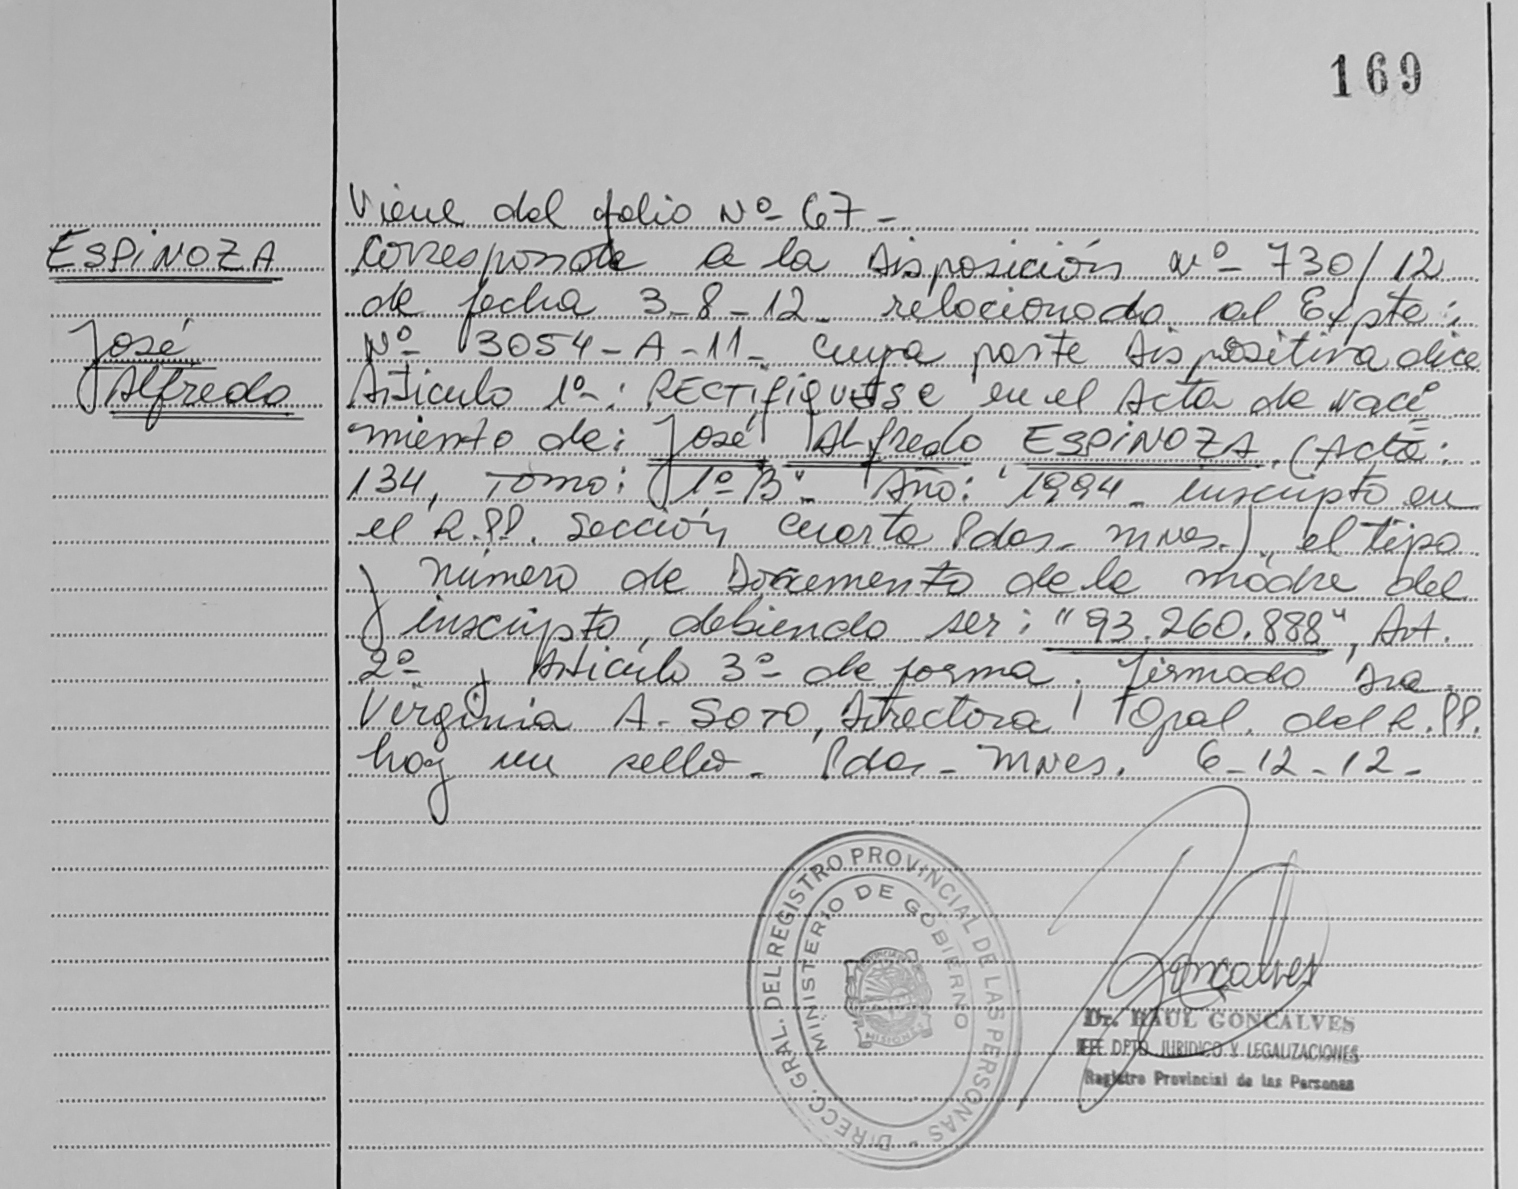 169
Viene del folio Nº 67-
ESPINOZA
José
Alfredo
Corresponde a la Disposición Nº- 730/12
de fecha 3-8-12- relacionado al Expte:
Nº- 3054-A-11- cuya parte dispositiva dice
Artículo 1º-: RECTIFIQUESE en el Acta de naci
miento de: José Alfredo ESPINOZA. (Acta:
134, Tomo: 1º B"- Año: 1994- inscripto en
el R.PP. Sección Cuarta Pdas- mnes.), el tipo
y número de Documento de la madre del
inscripto, debiendo ser: "93.260.888", Art.
2º y Artículo 3º de forma. firmado Dra.
Virginia A. SOTO, Directora Gral. del R.PP.
hay un sello- Pdas- mnes. 6-12-12-
DIRECC. GRAL. DEL REGISTRO PROVINCIAL DE LAS PERSONAS -
MINISTERIO DE GOBIERNO
MISIONES
Goncalves
Dr. RAUL GONCALVES
JEFE DPTO. JURIDICO Y LEGALIZACIONES
Registro Provincial de las Personas